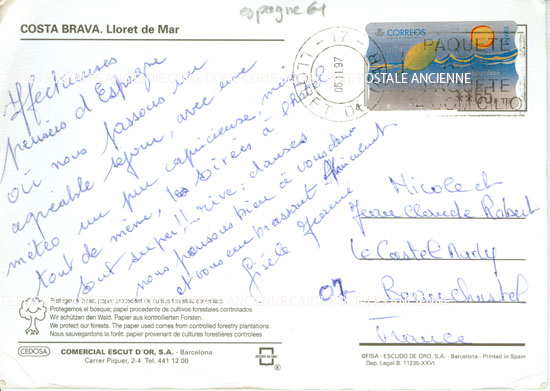 espagne 64
COSTA BRAVA. Lloret de Mar
LLORET DE MAR
-17-
06.11.97
CORREOS
PAQUETE
POSTALE ANCIENNE
Affectueuses
pensées d'Espagne
où nous passons un
agréable séjour, avec une
météo un peu capricieuse, mais
tout de même, les soirées à l'hôtel
sont super!! rire, danses
nous pensons bien à vous deux
et vous embrassons
Gisèle Jeanne
Nicole et
Jean Claude Robert
Le Castel Marly
07
France
Protegemos el bosque; papel procedente de cultivos forestales controlados
Wir schützen den Wald. Papier aus kontrollierten Forsten.
We protect our forests. The paper used comes from controlled forestry plantations
Nous sauvegardons la forêt: papier provenant de cultures forestières contrôlées
CEDOSA
COMERCIAL ESCUT D'OR, S.A. - Barcelona
Carrer Piquer, 2-4 Tel. 441 12 00
©FISA - ESCUDO DE ORO, S.A. - Barcelona - Printed in Spain
Dep. Legal B. 11235-XXVI